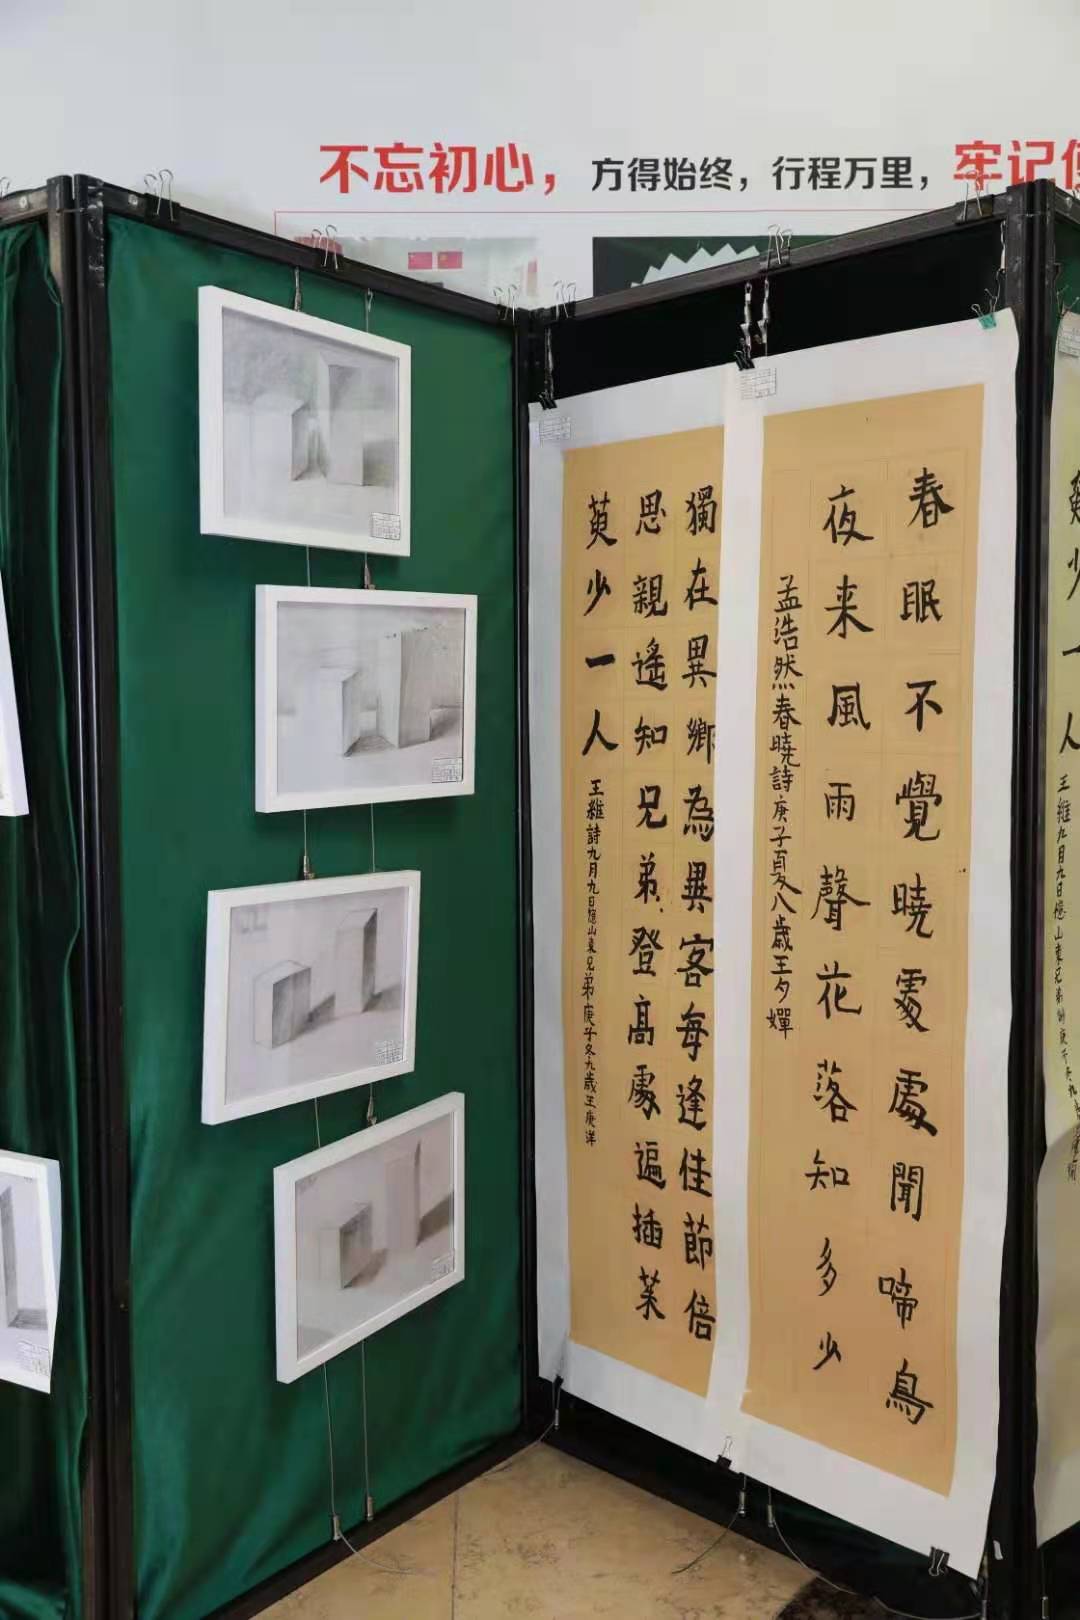 不忘初心，方得始终，行程万里，牢记
春眠不覺曉處處聞啼鳥
夜来風雨聲花落知多少
孟浩然春曉詩庚子夏八歲王夕嬋
獨在異鄉為異客每逢佳節倍
思親遙知兄弟登高處遍插茱
萸少一人
王維詩九月九日憶山東兄弟庚子冬九歲王庚洋
萸少一人
王維九月九日憶山東兄弟